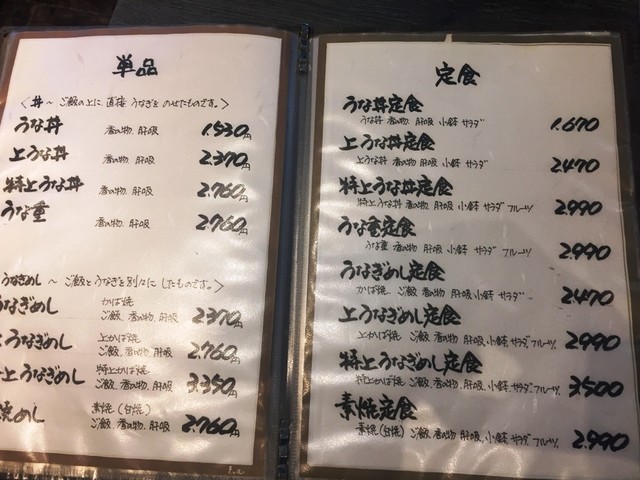 単品
〈丼～ご飯の上に、直接うなぎをのせたものです。〉
うな丼 香の物、肝吸 1.530円
上うな丼 香の物、肝吸 2.370円
特上うな丼 香の物、肝吸 2.760円
うな重 香の物、肝吸 2.760円
うなぎめし～ご飯とうなぎを別々にしたものです。〉
うなぎめし かば焼 ご飯、香の物、肝吸 2.370円
うなぎめし 上かば焼 ご飯、香の物、肝吸 2.760円
上うなぎめし 特上かば焼 ご飯、香の物、肝吸 3.350円
焼めし 素焼(白焼) ご飯、香の物、肝吸 2.760円
定食
うな丼定食 1.670
うな丼 香の物 肝吸 小鉢 サラダ
上うな丼定食 2.470
上うな丼 香の物 肝吸 小鉢 サラダ
特上うな丼定食 2.990
特上うな丼 香の物 肝吸 小鉢 サラダ フルーツ
うな重定食 2.990
うな重 香の物 肝吸 小鉢 サラダ フルーツ
うなぎめし定食 2.470
かば焼 ご飯 香の物 肝吸 小鉢 サラダ
上うなぎめし定食 2.990
上かば焼 ご飯 香の物 肝吸 小鉢 サラダ フルーツ
特上うなぎめし定食 3.500
特上かば焼 ご飯 香の物 肝吸 小鉢 サラダ フルーツ
素焼定食 2.990
素焼(白焼) ご飯 香の物 肝吸 小鉢 サラダ フルーツ